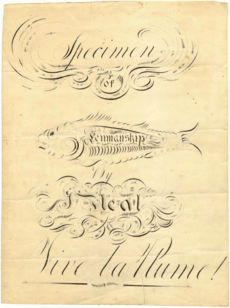 Specimen
of
Penmanship
by
Vive la Plume!